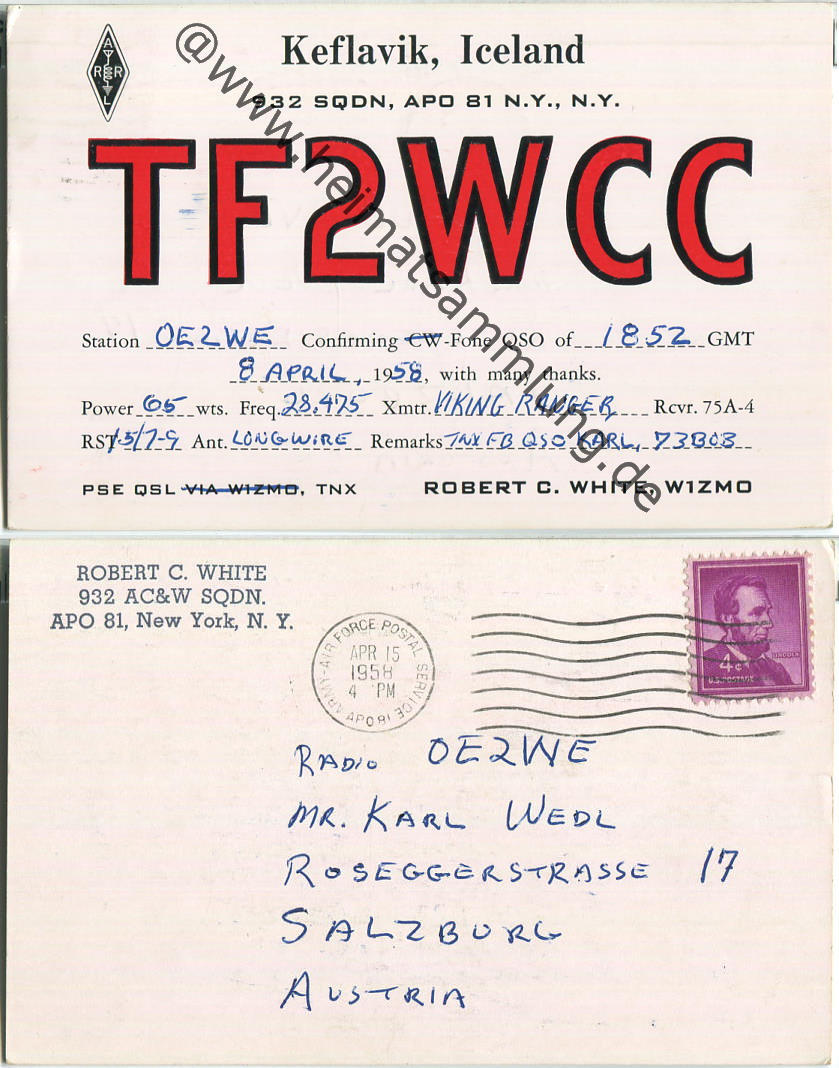 A
R R
L
Keflavik, Iceland
932 SQDN, APO 81 N.Y., N.Y.
TF2WCC
Station OE2WE Confirming CW-Fone QSO of 1852 GMT
8 APRIL, 1958, with many thanks.
Power 65 wts. Freq. 28.475 Xmtr. VIKING RANGER Rcvr. 75A-4
RST 5/7-9 Ant. LONGWIRE Remarks TNX FB QSO KARL, 73 BOB
PSE QSL VIA W1ZMO, TNX ROBERT C. WHITE, W1ZMO
@www.heimatsammlung.de
ROBERT C. WHITE
932 AC&W SQDN.
APO 81, New York, N. Y.
ARMY-AIR FORCE POSTAL SERVICE
APR 15
1958
4 PM
APO 81
LINCOLN
4¢
U.S. POSTAGE
RADIO OE2WE
MR. KARL WEDL
ROSEGGERSTRASSE 17
SALZBURG
AUSTRIA